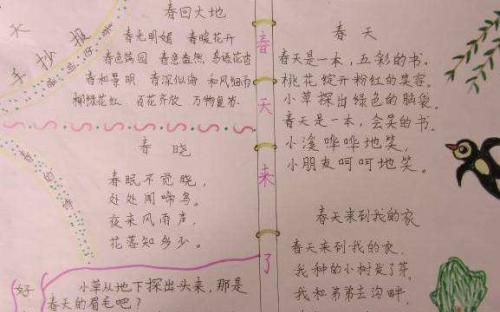 手抄报
春回大地
春光明媚 春暖花开
春色满园 春意盎然 鸟语花香
春和景明 春深似海 和风细雨
柳绿花红 百花齐放 万物复苏
春晓
春眠不觉晓，
处处闻啼鸟。
夜来风雨声，
花落知多少。
好
小草从地下探出头来，那是
春天的眉毛吧？
春天来了
春天
春天是一本，五彩的书．
桃花绽开粉红的笑容．
小草探出绿色的脑袋．
春天是一本，会笑的书．
小溪哗哗地笑，
小朋友呵呵地笑．
春天来到我的家
春天来到我的家．
我种的小树发了芽．
我和弟弟去沟畔．